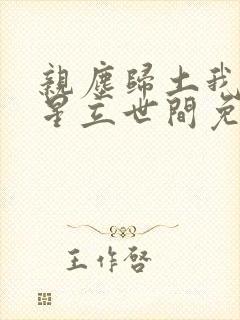 親塵歸土我
星立世間
王作啓